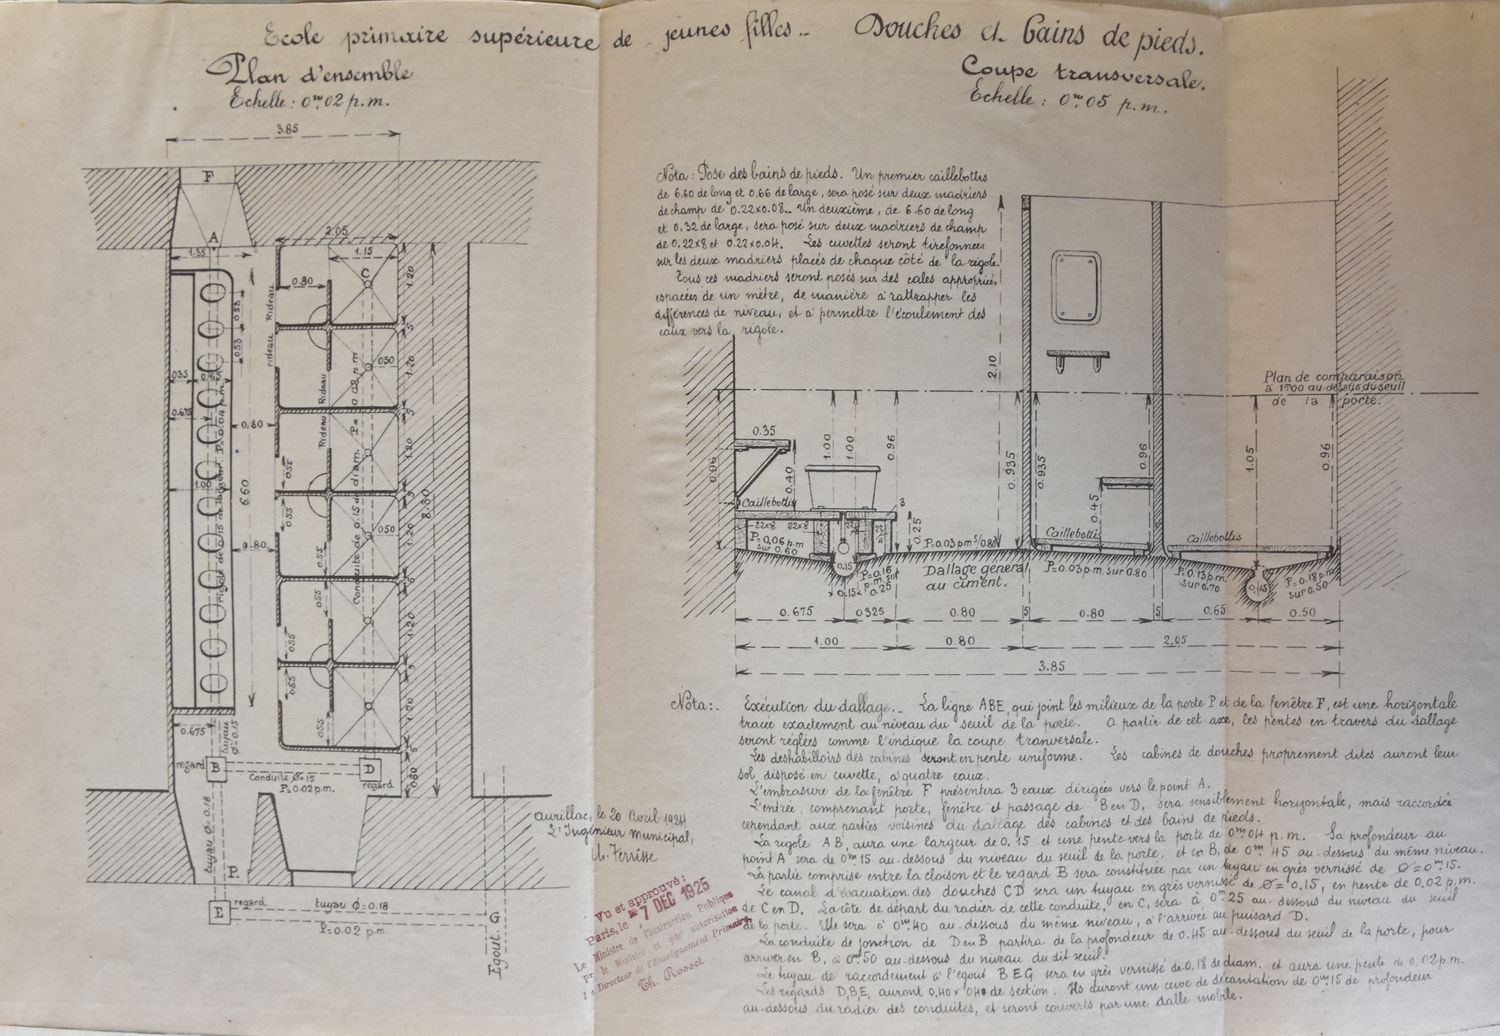 Ecole primaire supérieure de jeunes filles.. Douches et bains de pieds.
Plan d'ensemble
Echelle : 0m.02 p.m.
Coupe transversale.
Echelle : 0m.05 p.m.
3.85
F
A
2.05
1.35
1.15
C
0.80
1.20
Rideau
rideau
5
0.55
0.55
1.20
0.50
0.35
0.675
Rideau
Rideau
0.80
5
1.20
0.55
6.60
8.80
Conduite de 0.15 de diam. P= 0.02 p.m
5
0.55
0.50
1.20
0.80
0.55
1.20
0.55
0.55
5
0.55
1.20
0.55
5
0.675
tuyau Ø=0.15
0.80
regard
B
D
Conduite Ø=15
P=0.02 p.m.
regard
tuyau Ø=0.18
P.
E
regard
tuyau Ø=0.18
P=0.02 p.m.
G
Egout.
Aurillac, le 20 Avril 1924
L'Ingénieur Municipal,
Vu et approuvé:
Paris, le 7 DEC 1925
Le Ministre de l'Instruction Publique
Pr le Ministre et par autorisation
Le Directeur de l'Enseignement Primaire
Th. Rosset
Nota : Pose des bains de pieds. Un premier caillebottis
de 6.60 de long et 0.66 de large, sera posé sur deux madriers
de champ de 0.22x0.08.. Un deuxième, de 6.60 de long
et 0.32 de large, sera posé sur deux madriers de champ
de 0.22x8 et 0.22x0.04. Les cuvettes seront tirefonnées
sur les deux madriers placés de chaque côté de la rigole.
Tous ces madriers seront posés sur des cales appropriées
espacées de un mètre, de manière à rattrapper les
différences de niveau, et à permettre l'écoulement des
eaux vers la rigole.
2.10
Plan de comparaison
à 1m00 au-dessus du seuil
de la porte.
0.35
0.96
0.40
1.00
1.00
0.96
0.935
0.935
0.96
0.45
1.05
0.96
Caillebottis
3
22x8
22x8
0.25
P=0.06 p.m
sur 0.60
P=0.03 p.m s/0.80
Caillebottis
Caillebottis
0.15
P=0.16
p.m. sur
0.25
Dallage général
au ciment.
P=0.03 p.m. sur 0.80
P=0.13 p.m.
sur 0.70
0.15
P=0.18 p.m
sur 0.50
0.675
0.325
0.80
5
0.80
5
0.65
0.50
1.00
0.80
2,05
3.85
Nota:. Exécution du dallage._ La ligne ABE, qui joint les milieux de la porte P et de la fenêtre F, est une horizontale
tracée exactement au niveau du seuil de la porte. A partir de cet axe, les pentes en travers du dallage
seront réglées comme l'indique la coupe tranversale.
Les deshabilloirs des cabines seront en pente uniforme. Les cabines de douches proprement dites auront leur
sol disposé en cuvette, à quatre eaux.
L'embrasure de la fenêtre F présentera 3 eaux dirigées vers le point A.
L'entrée, comprenant porte, fenêtre et passage de B en D, sera sensiblement horizontale, mais raccordée
cependant aux parties voisines du dallage des cabines et des bains de pieds.
La rigole AB, aura une largeur de 0.15 et une pente vers la porte de 0m.04 p.m. Sa profondeur au
point A sera de 0m15 au-dessous du niveau du seuil de la porte, et en B, de 0m 45 au-dessous du même niveau.
La partie comprise entre la cloison et le regard B sera constituée par un tuyau en grès vernissé de Ø=0m15.
Le canal d'évacuation des douches CD sera un tuyau en grès vernissé de Ø=0,15, en pente de 0.02 p.m.
de C en D. La côte de départ du radier de cette conduite, en C, sera à 0m25 au-dessous du niveau du seuil
de la porte. Elle sera à 0m40 au-dessous du même niveau, à l'arrivée au puisard D.
La conduite de jonction de D en B partira de la profondeur de 0.45 au-dessous du seuil de la porte, pour
arriver en B, à 0m50 au-dessous du niveau du dit seuil.
Le tuyau de raccordement à l'égout BEG sera en grès vernissé de 0.18 de diam. et aura une pente de 0.02 p.m.
Les regards D,B,E, auront 0.40 x 0.40 de section. Ils auront une cuve de décantation de 0m15 de profondeur
au-dessous du radier des conduites, et seront couverts par une dalle mobile.